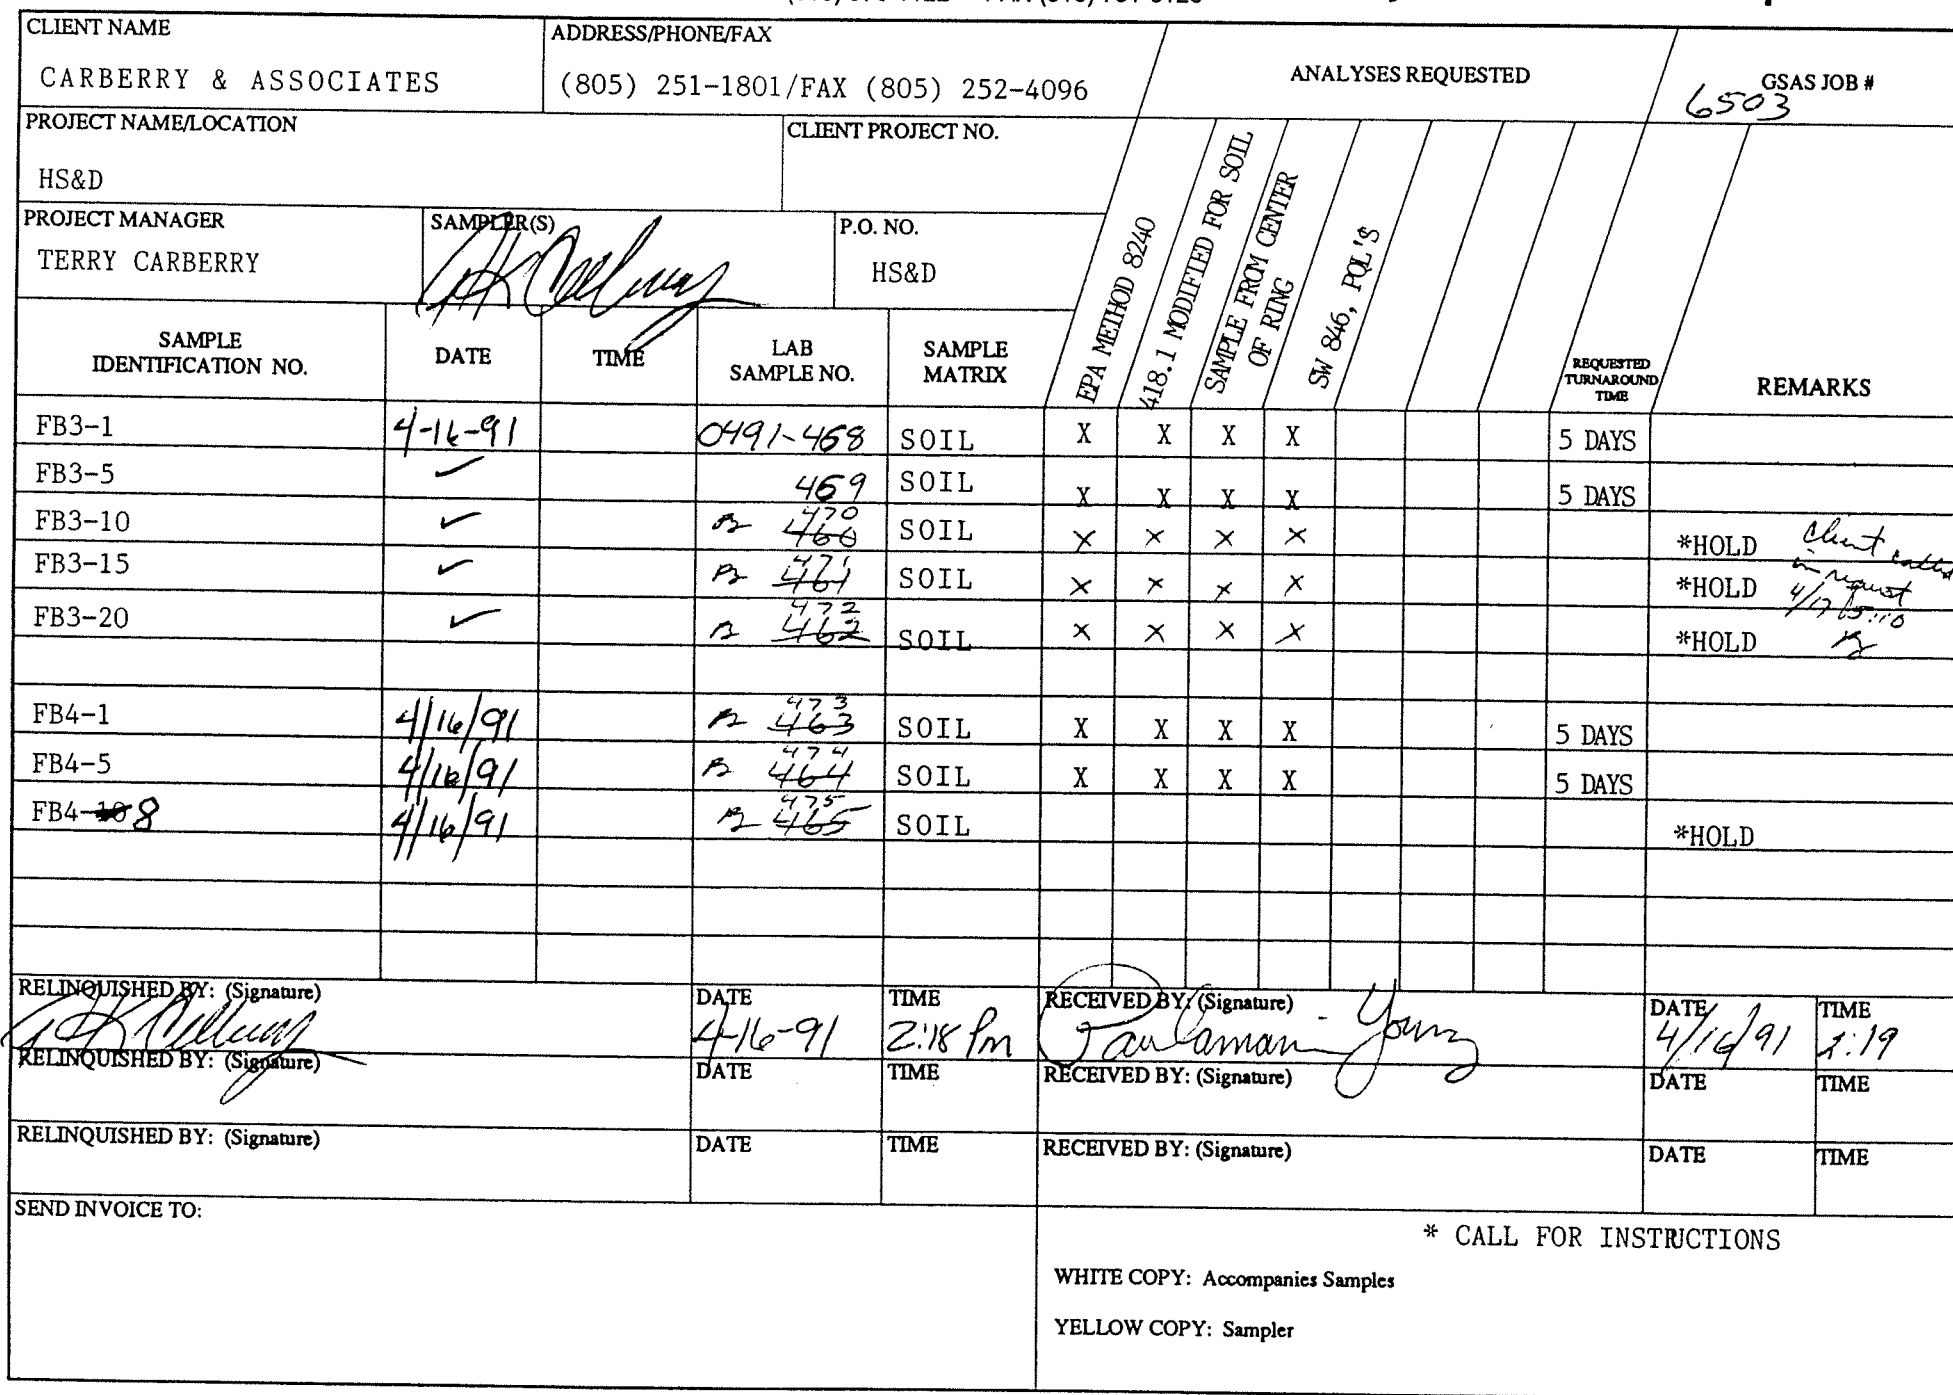 CLIENT NAME
CARBERRY & ASSOCIATES
ADDRESS/PHONE/FAX
(805) 251-1801/FAX (805) 252-4096
ANALYSES REQUESTED
GSAS JOB #
6503
PROJECT NAME/LOCATION
HS&D
CLIENT PROJECT NO.
PROJECT MANAGER
TERRY CARBERRY
SAMPLER(S)
P.O. NO.
HS&D
SAMPLE IDENTIFICATION NO. DATE TIME LAB SAMPLE NO. SAMPLE MATRIX
EPA METHOD 8240
418.1 MODIFIED FOR SOIL
SAMPLE FROM CENTER
OF RING
SW 846, PQL'S
REQUESTED TURNAROUND TIME
REMARKS
FB3-1 4-16-91 0491-468 SOIL X X X X 5 DAYS
FB3-5 ✓ 469 SOIL X X X X 5 DAYS
FB3-10 ✓ 470 460 SOIL X X X X *HOLD Client called
FB3-15 ✓ 471 461 SOIL X X X X *HOLD in request
4/17 5:10
FB3-20 ✓ 472 462 SOIL X X X X *HOLD
FB4-1 4/16/91 473 463 SOIL X X X X 5 DAYS
FB4-5 4/16/91 474 464 SOIL X X X X 5 DAYS
FB4-10 8 4/16/91 475 465 SOIL *HOLD
RELINQUISHED BY: (Signature) DATE TIME RECEIVED BY: (Signature) DATE TIME
4-16-91 2:18 Pm Young 4/16/91 2:19
RELINQUISHED BY: (Signature) DATE TIME RECEIVED BY: (Signature) DATE TIME
RELINQUISHED BY: (Signature) DATE TIME RECEIVED BY: (Signature) DATE TIME
SEND INVOICE TO:
* CALL FOR INSTRUCTIONS
WHITE COPY: Accompanies Samples
YELLOW COPY: Sampler